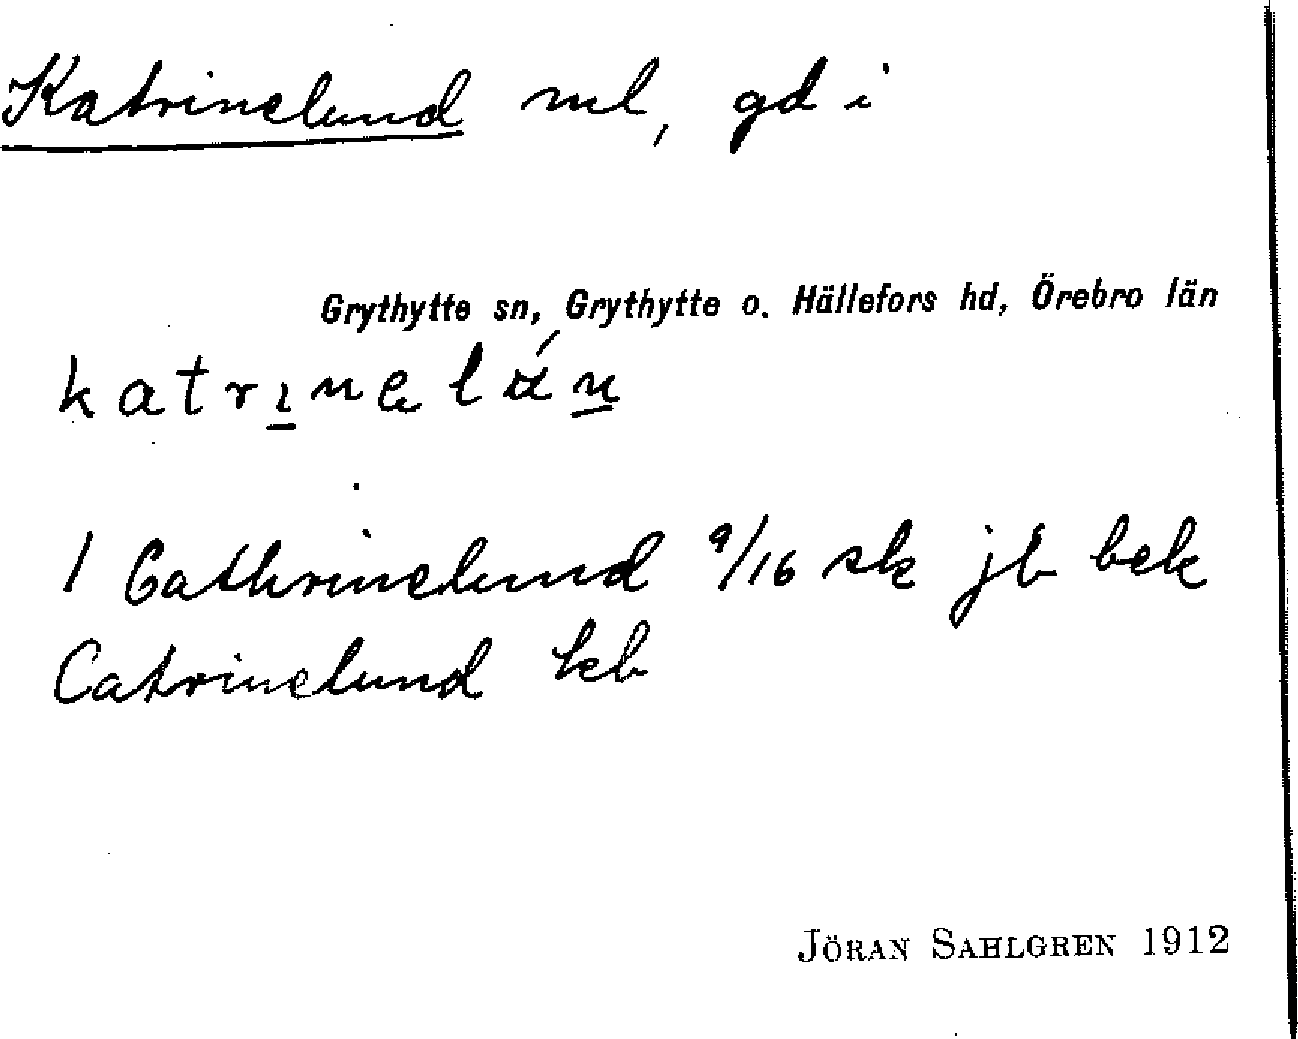 Katrinelund ml, gd i
Grythytte sn, Grythytte o. Hällefors hd, Örebro län
katrınelu̇́n
1 Cathrinelund 9/16 sk jb bek
Catrinelund kb
JÖRAN SAHLGREN 1912